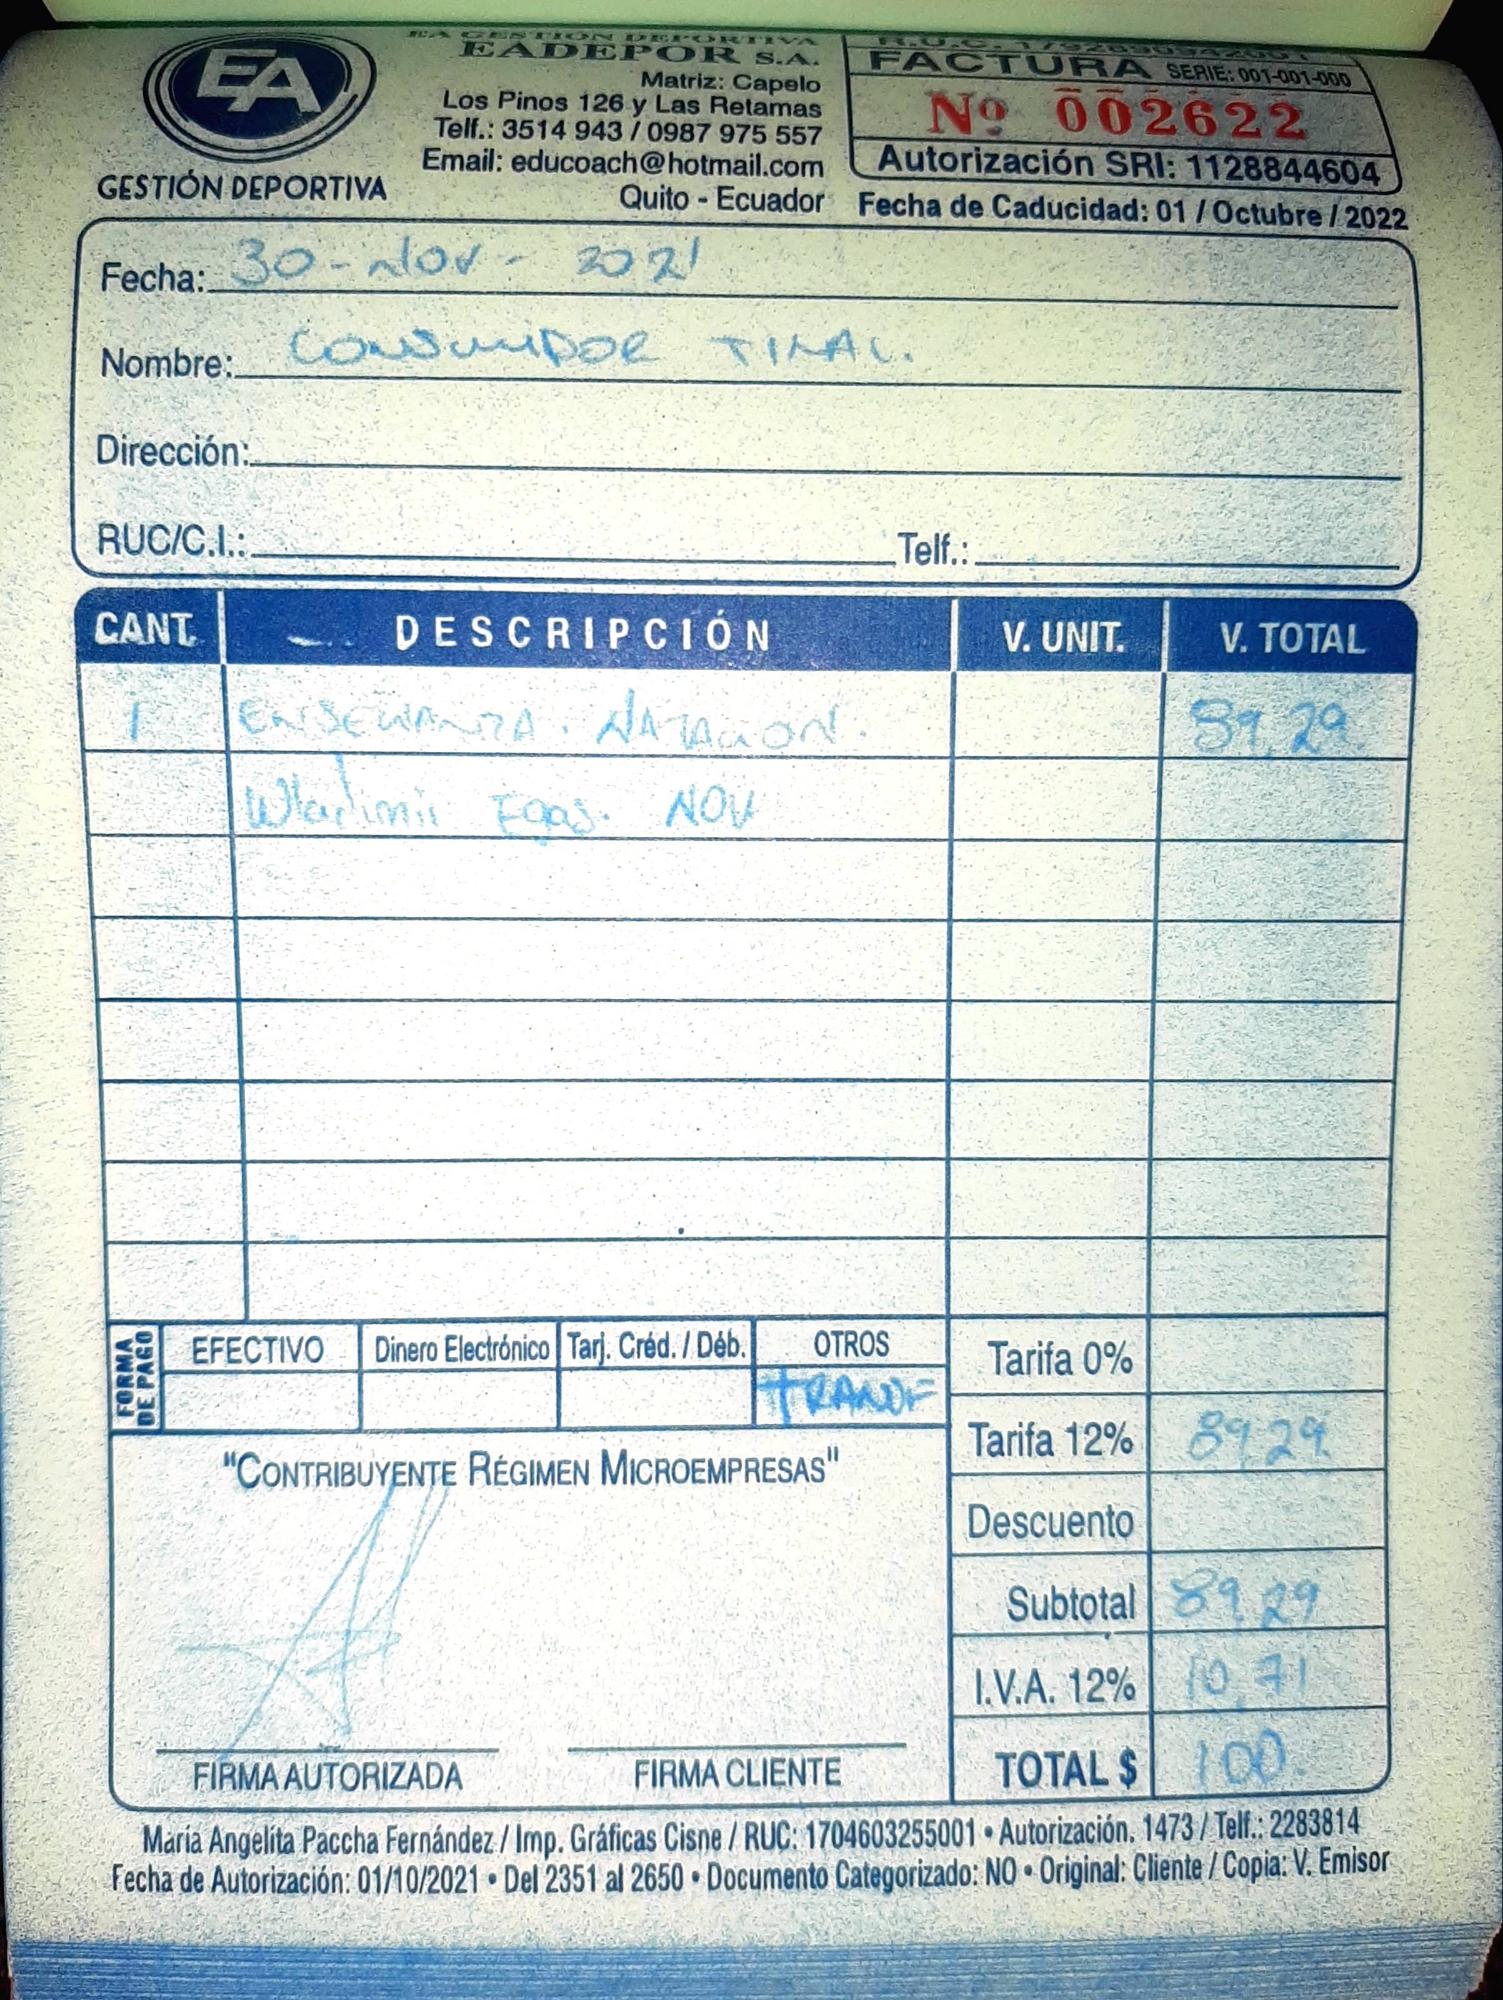 EA
GESTIÓN DEPORTIVA
EA GESTION DEPORTIVA
EADEPOR S.A.
Matriz: Capelo
Los Pinos 126 y Las Retamas
Telf.: 3514 943 / 0987 975 557
Email: educoach@hotmail.com
Quito - Ecuador
R.U.C.
FACTURA SERIE: 001-001-000
Nº 002622
Autorización SRI: 1128844604
Fecha de Caducidad: 01 / Octubre / 2022
Fecha: 30-Nov-2021
Nombre: CONSUMIDOR FINAL.
Dirección:
RUC/C.I.: Telf.:
CANT. DESCRIPCIÓN V. UNIT. V. TOTAL
1 ENSEÑANZA. NATACION. 89,29
Wladimir Egas. NOV
FORMA DE PAGO
EFECTIVO Dinero Electrónico Tarj. Créd. / Déb. OTROS
TRANF
Tarifa 0%
Tarifa 12% 89.29
Descuento
Subtotal 89.29
I.V.A. 12% 10,71
TOTAL $ 100.
"CONTRIBUYENTE RÉGIMEN MICROEMPRESAS"
FIRMA AUTORIZADA FIRMA CLIENTE
María Angelita Paccha Fernández / Imp. Gráficas Cisne / RUC: 1704603255001 • Autorización. 1473 / Telf.: 2283814
Fecha de Autorización: 01/10/2021 • Del 2351 al 2650 • Documento Categorizado: NO • Original: Cliente / Copia: V. Emisor